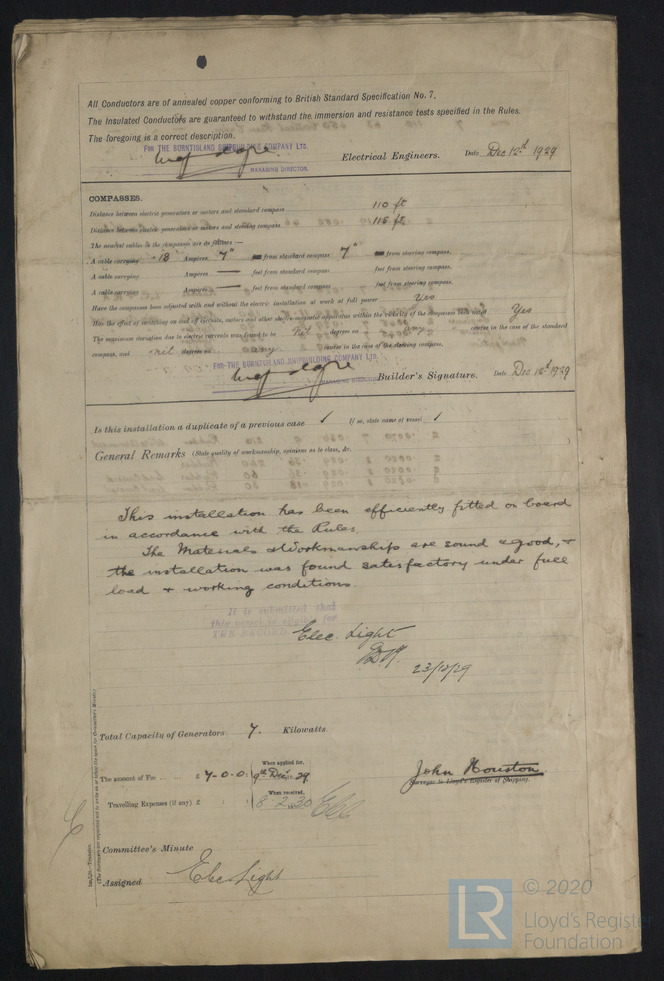 All Conductors are of annealed copper conforming to British Standard Specification No. 7.
The Insulated Conductors are guaranteed to withstand the immersion and resistance tests specified in the Rules.
The foregoing is a correct description.
For THE BURNTISLAND SHIPBUILDING COMPANY LTD.
Electrical Engineers. Date Dec 12th 1929
MANAGING DIRECTOR.
COMPASSES.
Distance between electric generators or motors and standard compass 110 ft
Distance between electric generators or motors and steering compass 115 ft
The nearest cables to the compasses are as follows:—
A cable carrying .18 Amperes 7" from standard compass 7" from steering compass.
A cable carrying Amperes — feet from standard compass feet from steering compass.
A cable carrying Amperes — feet from standard compass feet from steering compass.
Have the compasses been adjusted with and without the electric installation at work at full power Yes
Has the effect of switching on and off circuits, motors and other electro-magnetic apparatus within the vicinity of the compasses been noted Yes
The maximum deviation due to electric currents was found to be Nil degrees on any course in the case of the standard
compass, and nil degrees on any course in the case of the steering compass.
For THE BURNTISLAND SHIPBUILDING COMPANY LTD.
MANAGING DIRECTOR Builder's Signature. Date Dec 12th 1929
Is this installation a duplicate of a previous case ✓ If so, state name of vessel ✓
General Remarks (State quality of workmanship, opinions as to class, &c.
This installation has been efficiently fitted on board
in accordance with the Rules.
The Materials & Workmanship are sound & good, +
the installation was found satisfactory under full
load + working conditions.
It is submitted that
this vessel is eligible for
THE RECORD Elec. Light
23/12/29
Total Capacity of Generators 7. Kilowatts.
The amount of Fee ... £ 7-0-0: When applied for, 9th Dec. 29
John Houston
Surveyor to Lloyd's Register of Shipping.
Travelling Expenses (if any) £ When received, 8.2.30
Committee's Minute
Assigned Elec Light
© 2020
LR
Lloyd's Register
Foundation